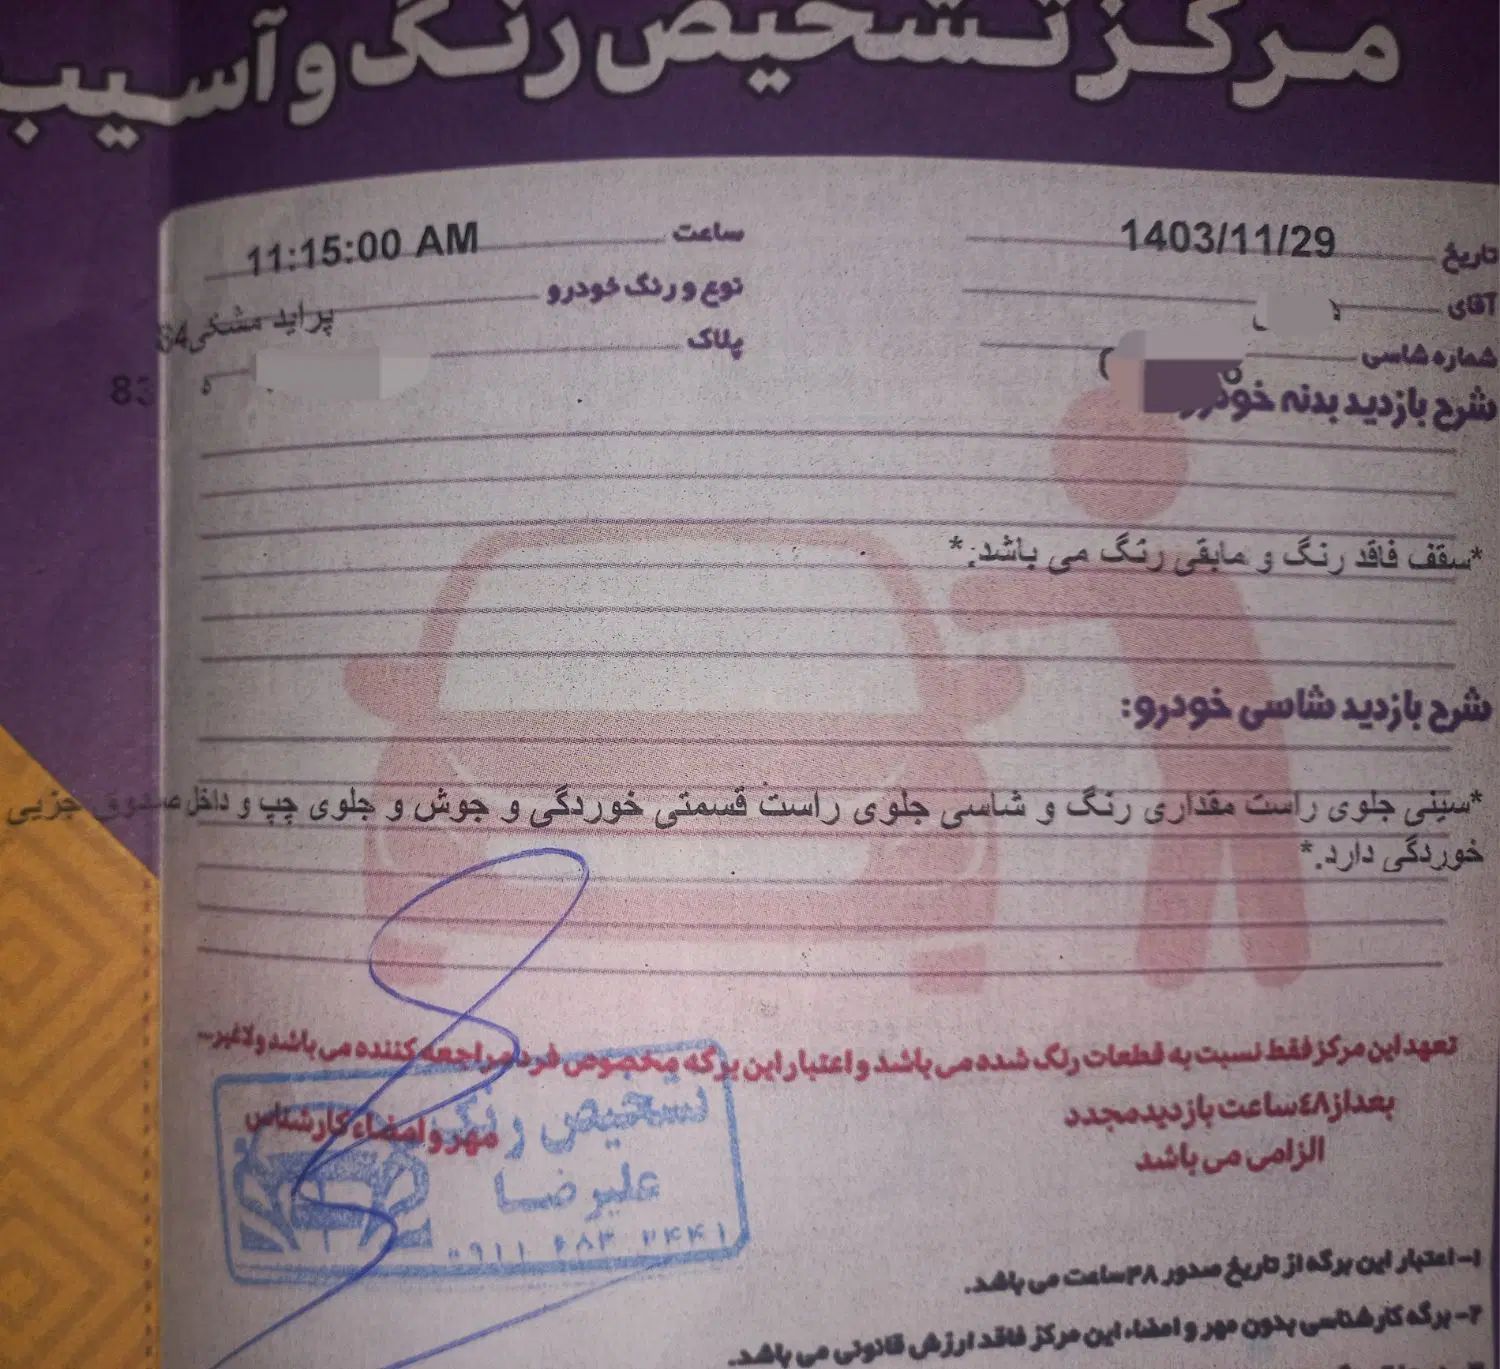 مرکز تشخیص رنگ و آسیب
تاریخ 1403/11/29
ساعت 11:15:00 AM
آقای
نوع و رنگ خودرو پراید مشکی84
شماره شاسی
پلاک
83
شرح بازدید بدنه خودرو
*سقف فاقد رنگ و مابقی رنگ می باشد.*
شرح بازدید شاسی خودرو:
*سینی جلوی راست مقداری رنگ و شاسی جلوی راست قسمتی خوردگی و جوش و جلوی چپ و داخل صندوق جزیی
خوردگی دارد.*
تعهد این مرکز فقط نسبت به قطعات رنگ شده می باشد و اعتبار این برگه مخصوص فرد مراجعه کننده می باشد ولاغیر...
بعداز ٤٨ساعت بازدیدمجدد
الزامی می باشد
مهر و امضاء کارشناس
تشخیص رنگ
علیرضا
۱- اعتبار این برگه از تاریخ صدور ۴۸ساعت می باشد.
۲- برگه کارشناسی بدون مهر و امضاء این مرکز فاقد ارزش قانونی می باشد.